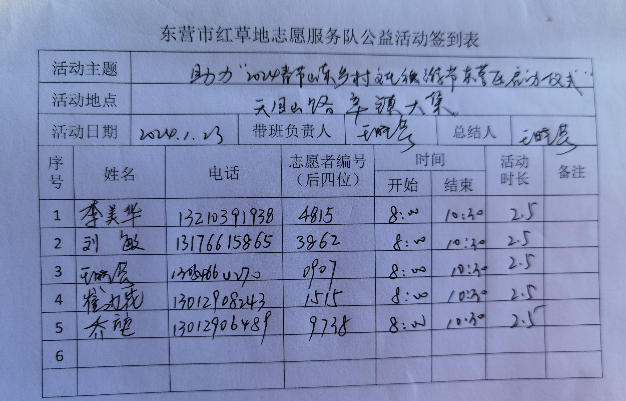 东营市红草地志愿服务队公益活动签到表
活动主题 助力“2024春节山东乡村文化旅游节东营区启动仪式”
活动地点 天目山路辛镇大集
活动日期 2024.1.23 带班负责人 总结人
序号 姓名 电话 志愿者编号（后四位） 时间 活动时长 备注
开始 结束
1 李美华 13210391938 4815 8:00 10:30 2.5
2 刘敏 13176615865 3862 8:00 10:30 2.5
3 0907 8:00 10:30 2.5
4 13012908243 1515 8:00 10:30 2.5
5 乔 13012906489 9738 8:00 10:30 2.5
6